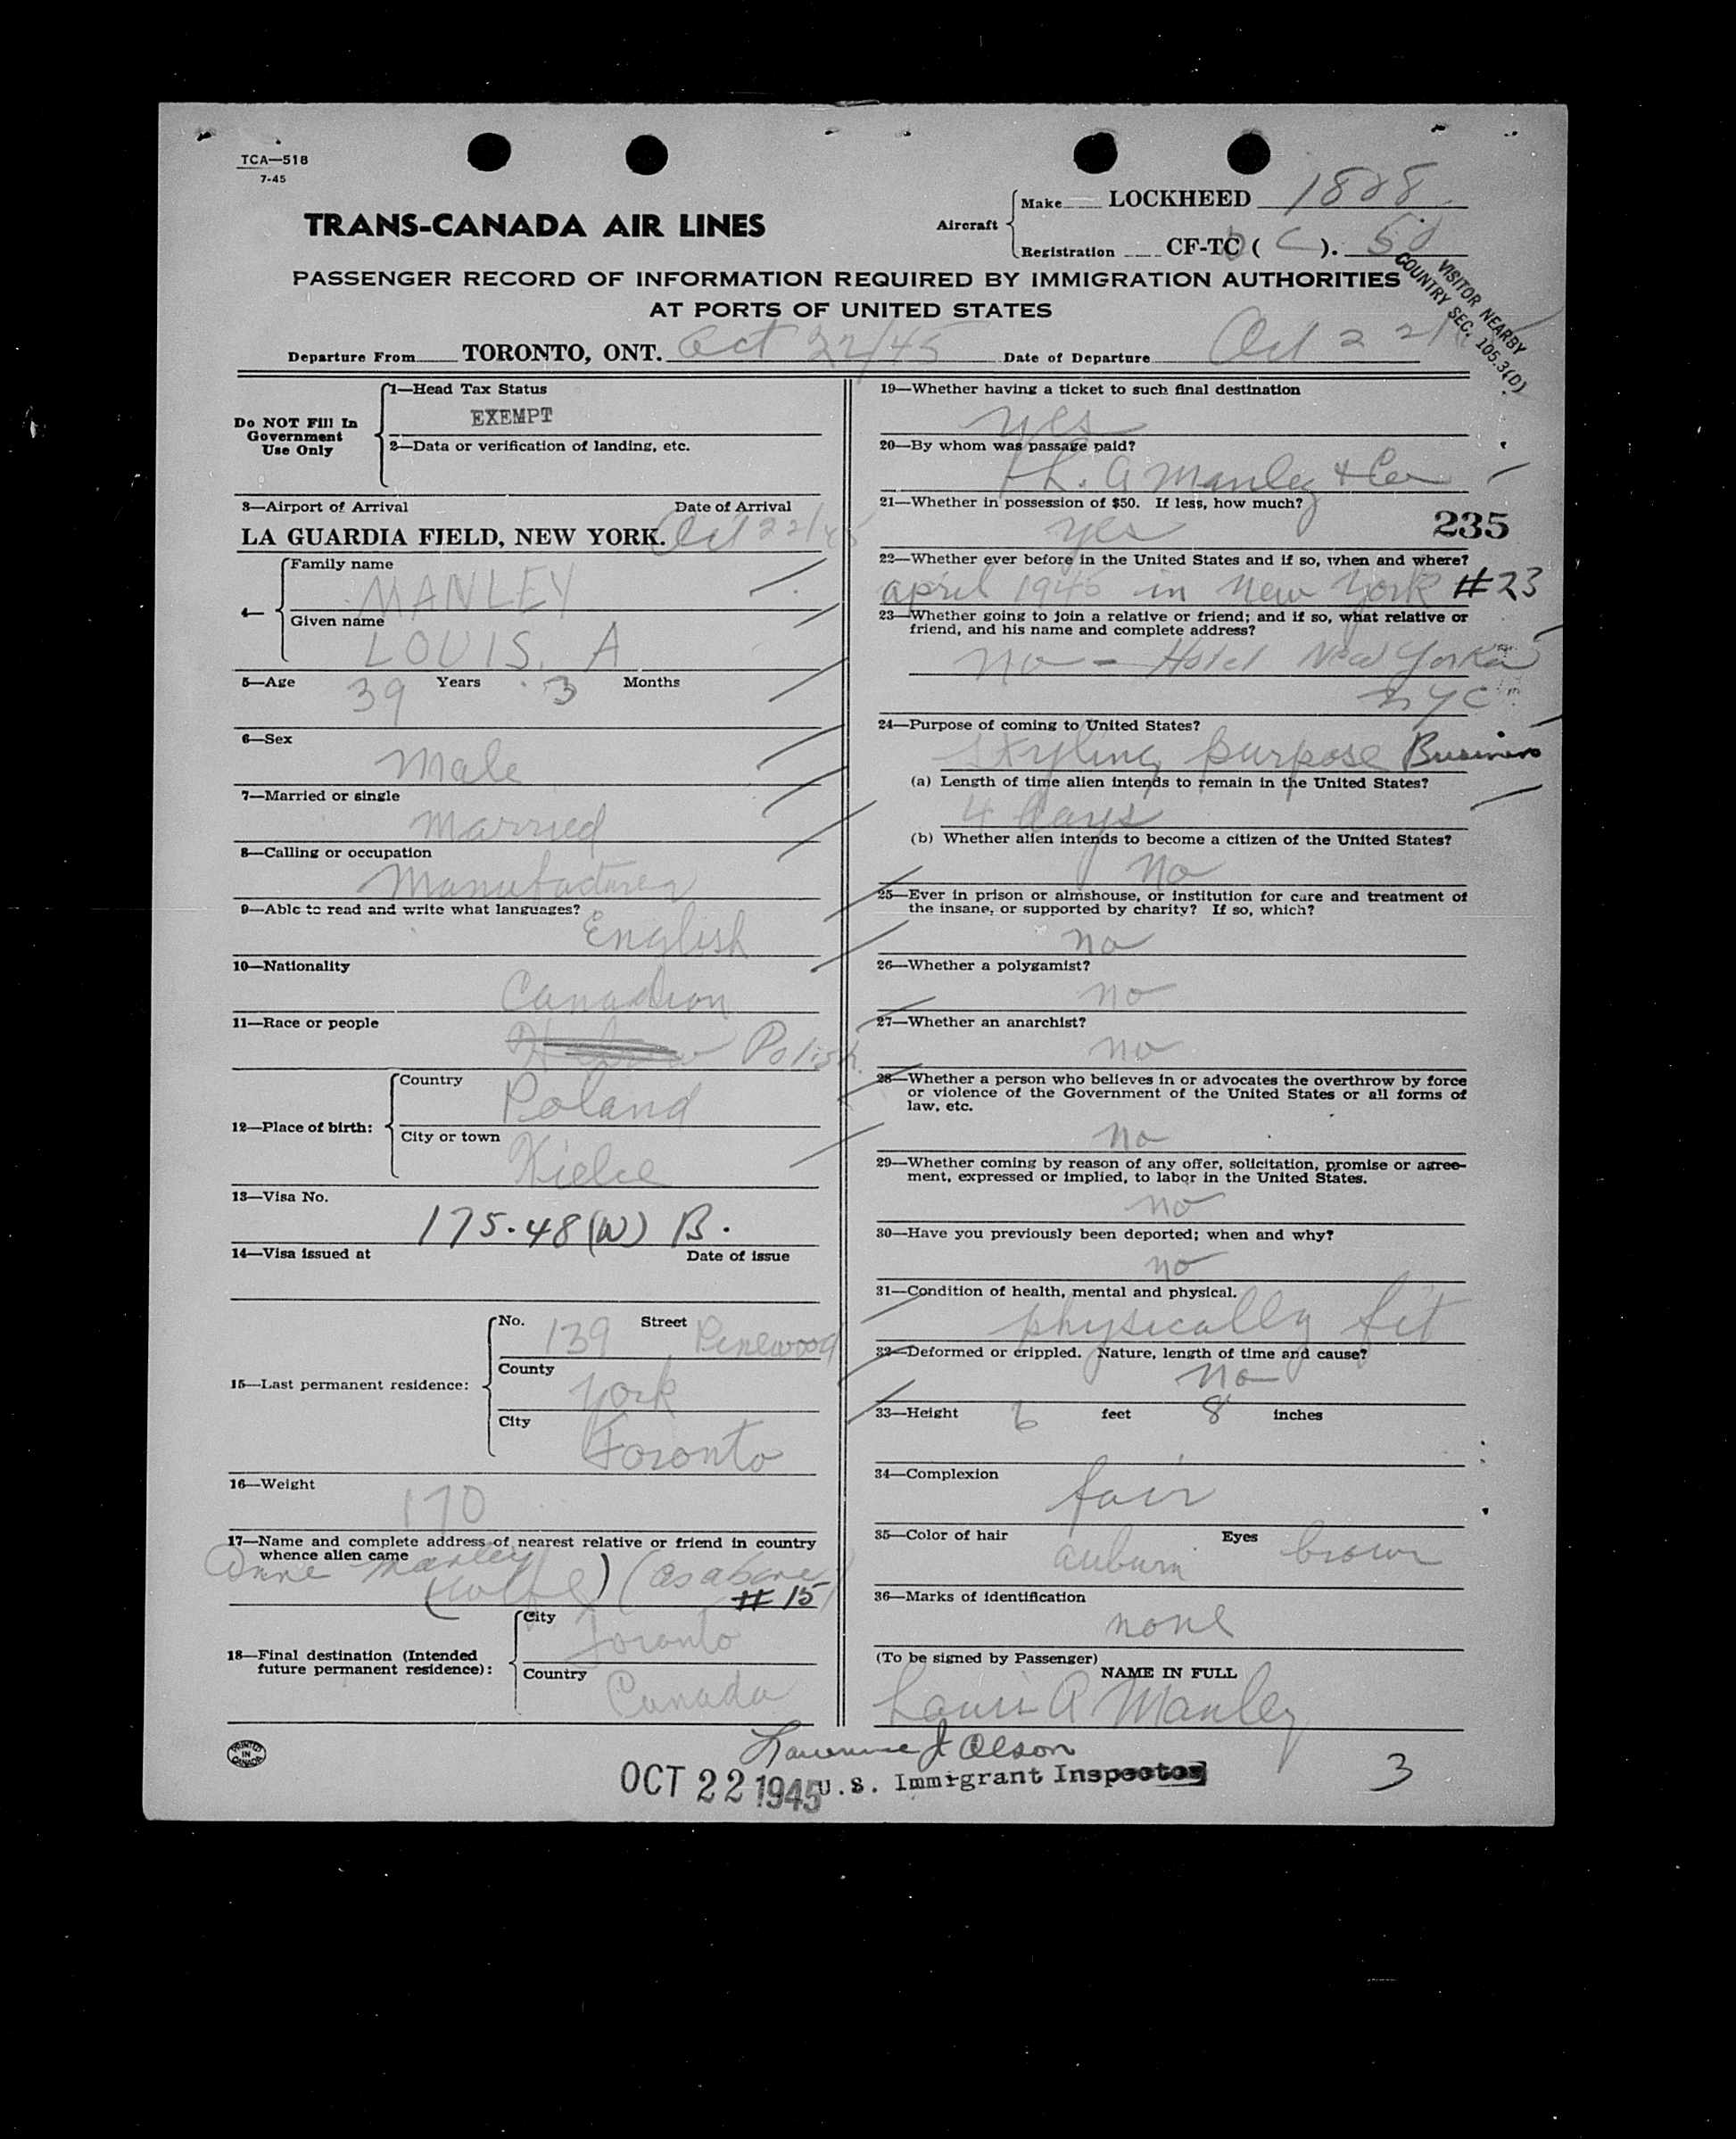 TCA—518
7-45
TRANS-CANADA AIR LINES
Aircraft
Make LOCKHEED
Registration CF-TC ( C ). 50
PASSENGER RECORD OF INFORMATION REQUIRED BY IMMIGRATION AUTHORITIES
AT PORTS OF UNITED STATES
VISITOR NEARBY
COUNTRY SEC. 105.3(D)
Departure From TORONTO, ONT. Oct 22/45 Date of Departure Oct 22/
Do NOT Fill In
Government
Use Only
1—Head Tax Status
EXEMPT
2—Data or verification of landing, etc.
3—Airport of Arrival Date of Arrival
LA GUARDIA FIELD, NEW YORK. Oct 22/45
4—
Family name
MANLEY
Given name
LOUIS. A
5—Age 39 Years 3 Months
6—Sex
Male
7—Married or single
Married
8—Calling or occupation
Manufacturer
9—Able to read and write what languages?
English
10—Nationality
Canadian
11—Race or people
Hebrew Polish
12—Place of birth:
Country
Poland
City or town
Kielce
13—Visa No.
175.48(W) B.
14—Visa issued at Date of issue
15—Last permanent residence:
No. 139 Street Pinewood
County
York
City
Toronto
16—Weight
170
17—Name and complete address of nearest relative or friend in country
whence alien came
Anne Manley
(wife) (as above)
# 15
18—Final destination (Intended
future permanent residence):
City
Toronto
Country
Canada
19—Whether having a ticket to such final destination
yes
20—By whom was passage paid?
L. A Manley & Co
21—Whether in possession of $50. If less, how much?
yes
235
22—Whether ever before in the United States and if so, when and where?
april 1945 in New York #23
23—Whether going to join a relative or friend; and if so, what relative or
friend, and his name and complete address?
no - Hotel New Yorker
NYC
24—Purpose of coming to United States?
Styling purpose Business
(a) Length of time alien intends to remain in the United States?
4 days
(b) Whether alien intends to become a citizen of the United States?
No
25—Ever in prison or almshouse, or institution for care and treatment of
the insane, or supported by charity? If so, which?
no
26—Whether a polygamist?
no
27—Whether an anarchist?
no
28—Whether a person who believes in or advocates the overthrow by force
or violence of the Government of the United States or all forms of
law, etc.
no
29—Whether coming by reason of any offer, solicitation, promise or agree-
ment, expressed or implied, to labor in the United States.
no
30—Have you previously been deported; when and why?
no
31—Condition of health, mental and physical.
physically fit
32—Deformed or crippled. Nature, length of time and cause?
No
33—Height 6 feet 8 inches
34—Complexion
fair
35—Color of hair Eyes
auburn brown
36—Marks of identification
none
(To be signed by Passenger)
NAME IN FULL
Louis A Manley
PRINTED
IN
CANADA
Lawrence J Olson
OCT 22 1945 U. S. Immigrant Inspector
3